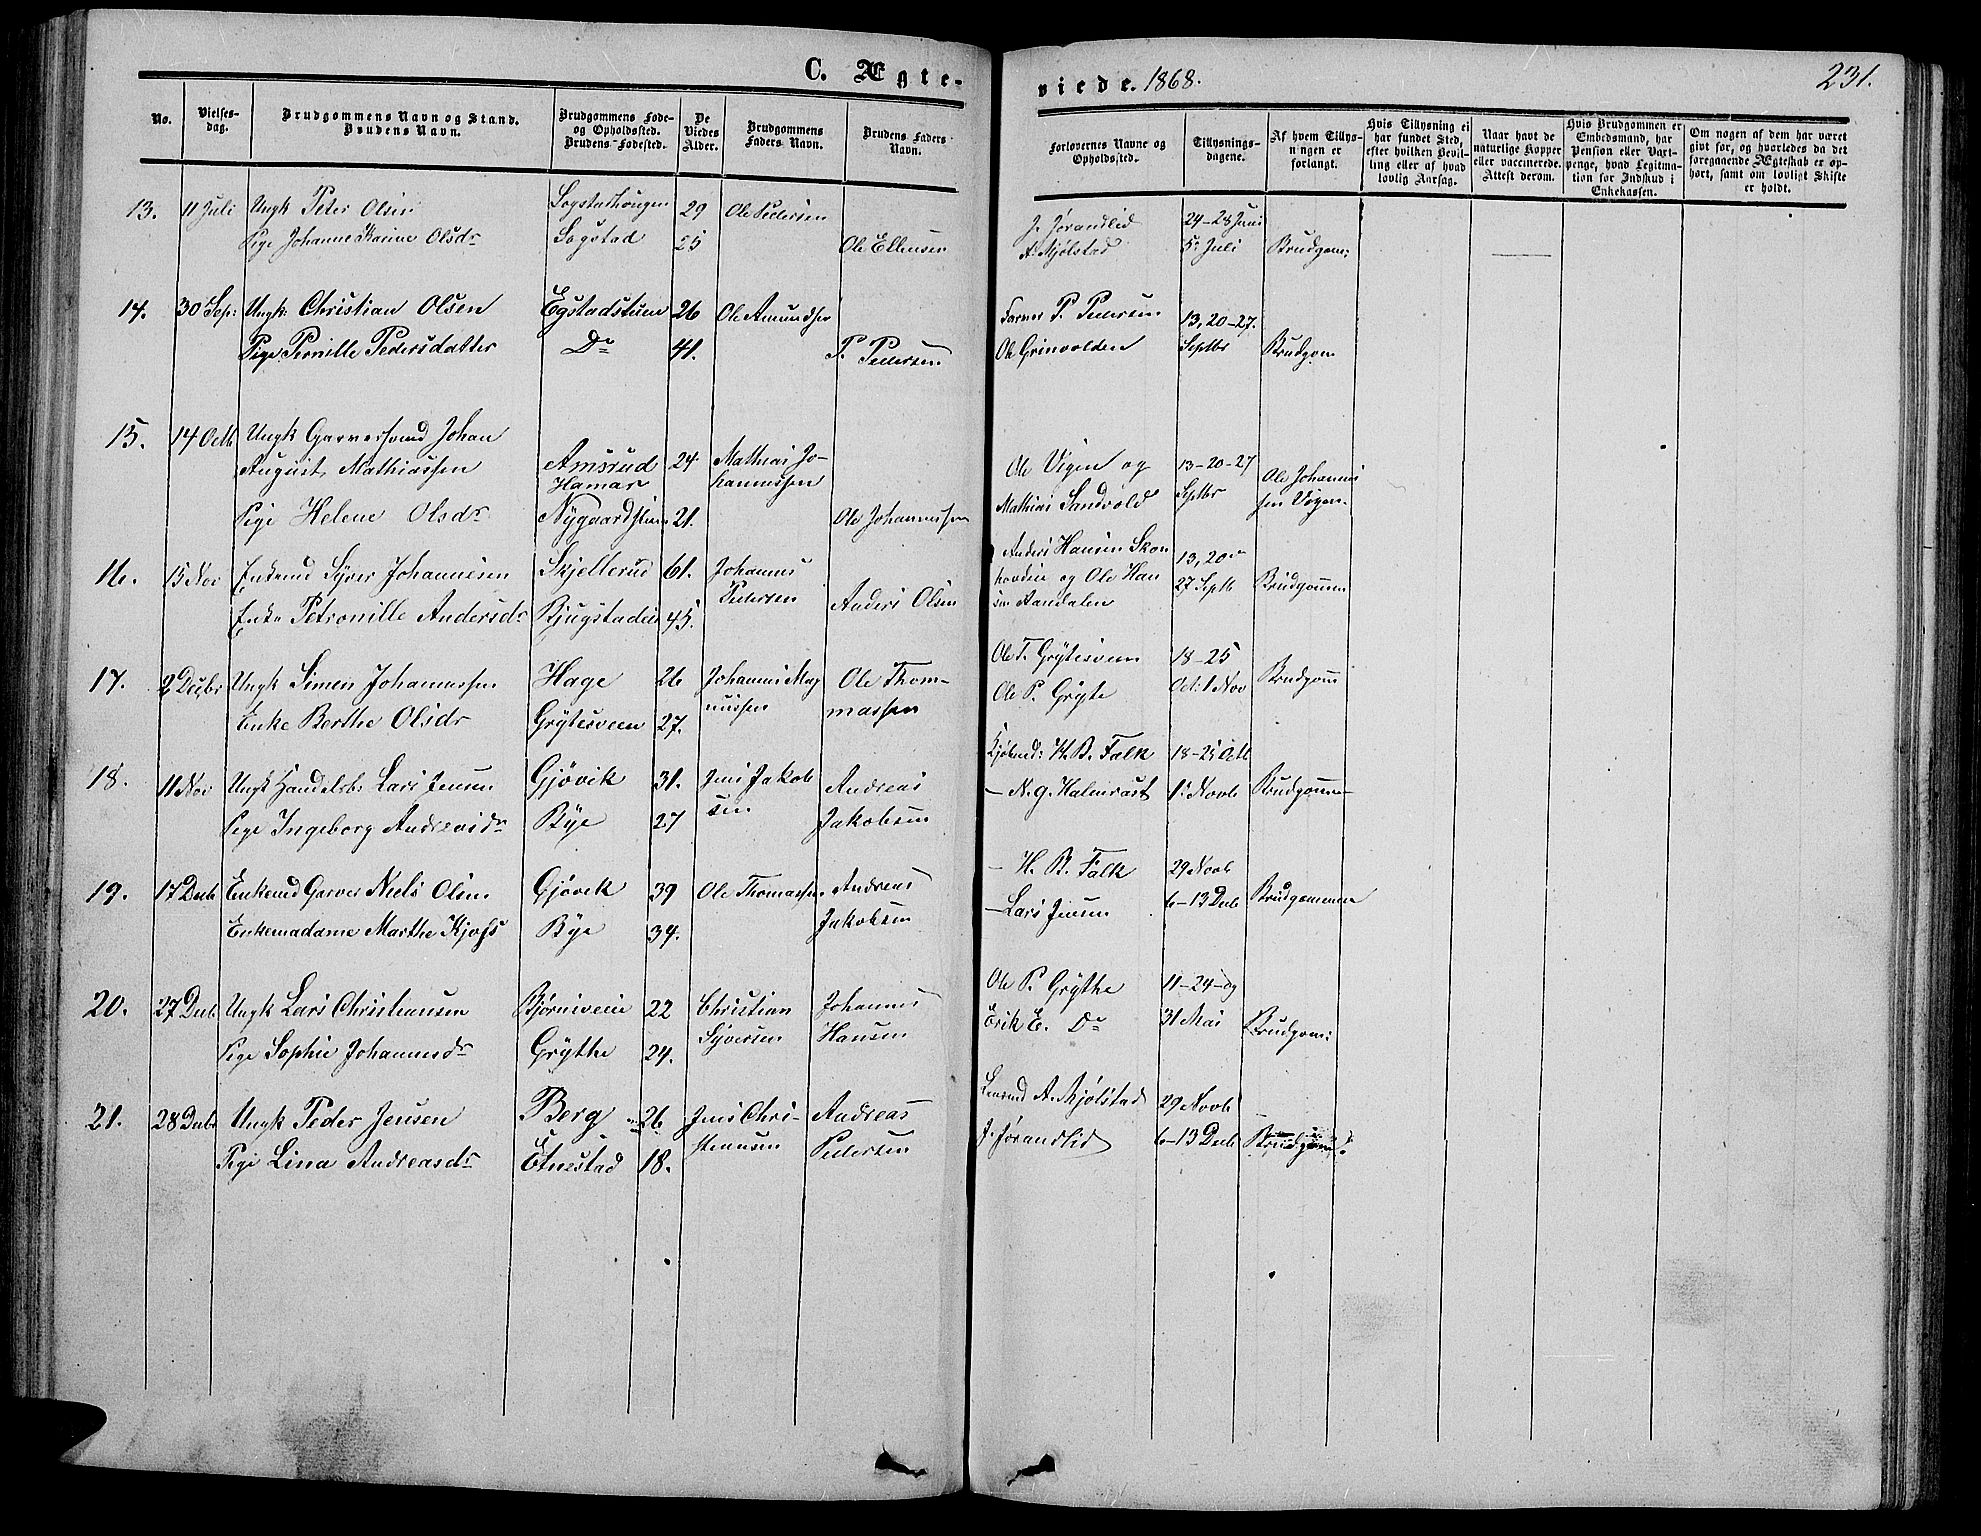 C. Ægte-
No.
Vielses-
dag.
Brudgommens Navn og Stand.
Brudens Navn.
Brudgommens Føde-
og Opholdssted.
Brudens Fødested.
De
Viedes
Alder.
Brudgommens
Faders Navn.
Brudens Faders
Navn.
13. 11 Juli Ungk Peter Olsen 29 Ole Pedersen
Pige Johanne Karine Olsdr Sogstad 25 Ole Ellensen
14. 30 Sep: Ungk: Christian Olsen Egstadstuen 26 Ole Amundsen
Pige Pernille Pedersdatter Do 41. P. Pedersen
15. 14 Octb Ungk Garversvend Johan
August Mathiassen Amsrud 24 Mathias Jo-
Hamar hannessen
Pige Helene Olsdr Nygaardstuen 21. Ole Johannessen
16. 15 Nov Enkemd Syver Johannesen Skjellerud 61. Johannes
Pedersen
Enke Petronille Andersdr 45. Anders Olsen
17. 2 Decbr Ungk Simen Johannessen Hage 26 Johannes Mag Ole Thom-
nussen massen
Enke Berthe Olsdr Grytesveen 27.
18. 11 Nov Ungk Handelsb: Lars Jensen Gjøvik 31. Jens Jakob Andreas
sen
Pige Ingeborg Andreasdr Bye 27 Jakobsen
19. 17 Decb Enkemd Garver Niels Olsen Gjøvik 39 Ole Thomassen Andreas
Enkemadame Marthe Kjøss Bye 34. Jakobsen
20. 27 Decb Ungk Lars Christiansen Bjørnsveen 22 Christian Johannes
Pige Sophie Johannesdr Grythe 24. Syversen Hansen
21. 28 Decbr Ungk Peder Jensen Berg 26 Jens Chri- Andreas
Pige Lina Andreasdr Etnestad 18. stensen Pedersen
viede. 1868.
231.
Forlovernes Navne og
Opholdssted.
Tillysnings-
dagene.
Af hvem Tillys-
ningen er
forlangt.
Hvis Tillysning ei
har fundet Sted,
efter hvilken Bevil-
ling eller af hvad
lovlig Aarsag.
Naar havt de
naturlige Kopper
eller vaccinerede.
Attest derom.
Hvis Brudgommen er
Embedsmand, har
Pension eller Vart-
penge, hvad Legitima-
tion for Indskud i
Enkekassen.
Om nogen af dem har været
gift før, og hvorledes da det
foregaaende Ægteskab er op-
hørt, samt om lovligt Skifte
er holdt.
J. Jørandlid 24-28 Juni
A. Mjølstad 5 Juli Brudgom:
P. Pedersen 13, 20-27.
Ole Grinvolden Septbr Brudgom
Ole Vigen og 13-20-27 Ole Johannes
Mathias Sandvold Septbr sen Vigen.
Anders Hansen Skon 13, 20
hovdeie og Ole Han 27 Septb Brudgommen
sen
Ole T. Grytesveen 18-25
Ole P. Gryte Oct: 1 Nov Brudgom
Kjøbmd: H. B. Falk 18-25 Octb
- N. G. Halmrast 1 Novb Brudgommen
- H. B. Falk 29 Novb
- Lars Jensen 6-13 Decb Brudgommen
Ole P. Grythe 11-24- og
Erik E. Do 31 Mai Brudgom:
A. Mjølstad 29 Novb
J. Jørandlid 6-13 Decb Brudgom: